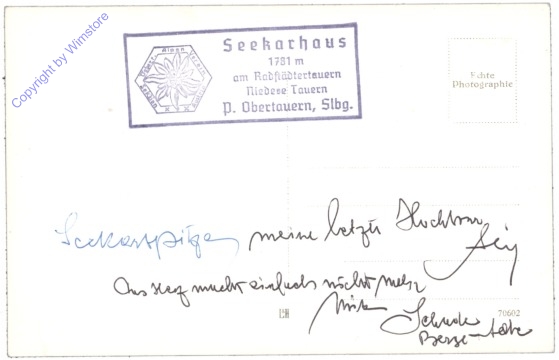 Copyright by Wimstore
Seekarhaus
1781 m
am Radstädtertauern
Niedere Tauern
P. Obertauern, Slbg.
Echte
Photographie
Seekarspitze, meine letzte Hochtour
Das Herz macht einfach nicht mehr
mit
Schade
Berge – ade
70602